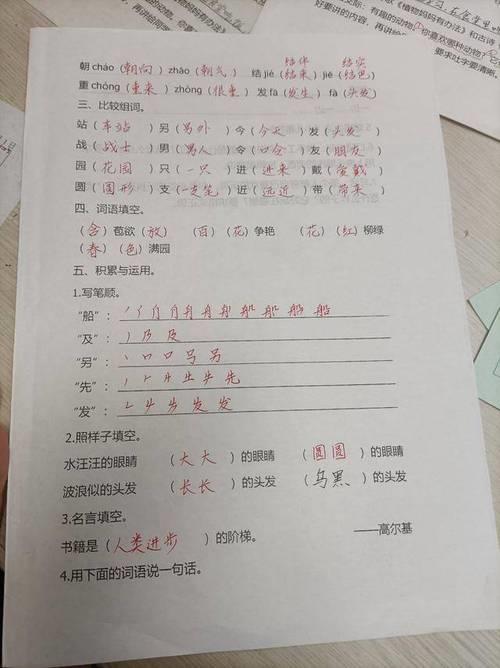 《植物妈妈有办法》和古诗
好要讲的内容，再讲给同
结伴 结实
朝cháo（朝向）zhāo（朝气） 结jié（结束）jiē（结巴）
重chóng（重来）zhòng（很重） 发fā（发生）fà（头发）
三、比较组词。
站（车站）另（另外）今（今天）发（头发）
战（战士）男（男人）令（口令）友（朋友）
园（花园）只（一只）进（进来）戴（爱戴）
圆（圆形）支（一支笔）近（远近）带（带来）
四、词语填空。
（含）苞欲（放） （百）（花）争艳 （花）（红）柳绿
（春）（色）满园
五、积累与运用。
1.写笔顺。
“船”：
“及”：丿 乃 及
“另”：丨 口 口 号 另
“先”：
“发”：
2.照样子填空。
水汪汪的眼睛 （大大）的眼睛 （圆圆）的眼睛
波浪似的头发 （长长）的头发 （乌黑）的头发
3.名言填空。
书籍是（人类进步）的阶梯。 ——高尔基
4.用下面的词语说一句话。